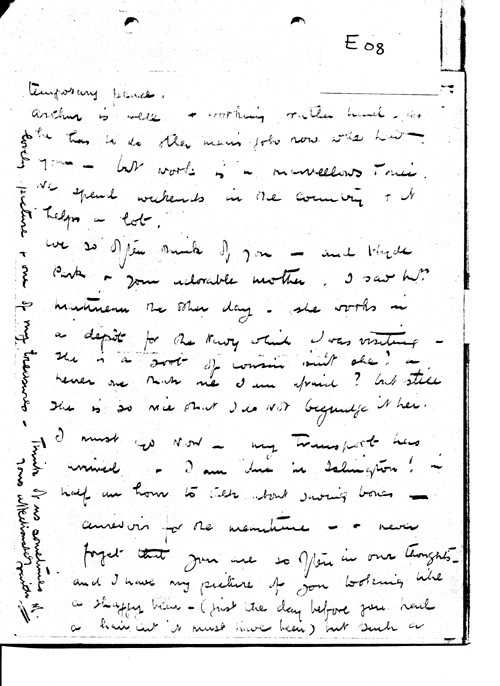 E 08
temporary peace.
Arthur is well + working rather hard - as
he has to do other man's job now who has
gone - but work is a marvellous tonic.
We spend weekends in the country + it
helps a lot.
We so often think of you - and Hyde
Park + your adorable mother. I saw Mrs
the other day - she works in
a depot for the Navy which I was visiting -
She is a sort of cousin isn't she? a
never one that me I am afraid? but still
she is so nice that I do not begrudge it her.
I must go now - my transport has
arrived - + I am due in Islington! in
half an hour to talk about saving bones -
Aurevoir for the meantime - + never
forget that you are so often in our thoughts -
and I have my picture of you looking like
a shaggy bear - (just the day before you had
a hair cut it must have been) but such a
lovely picture + one of my treasures - Think of us sometimes
Yours affectionately